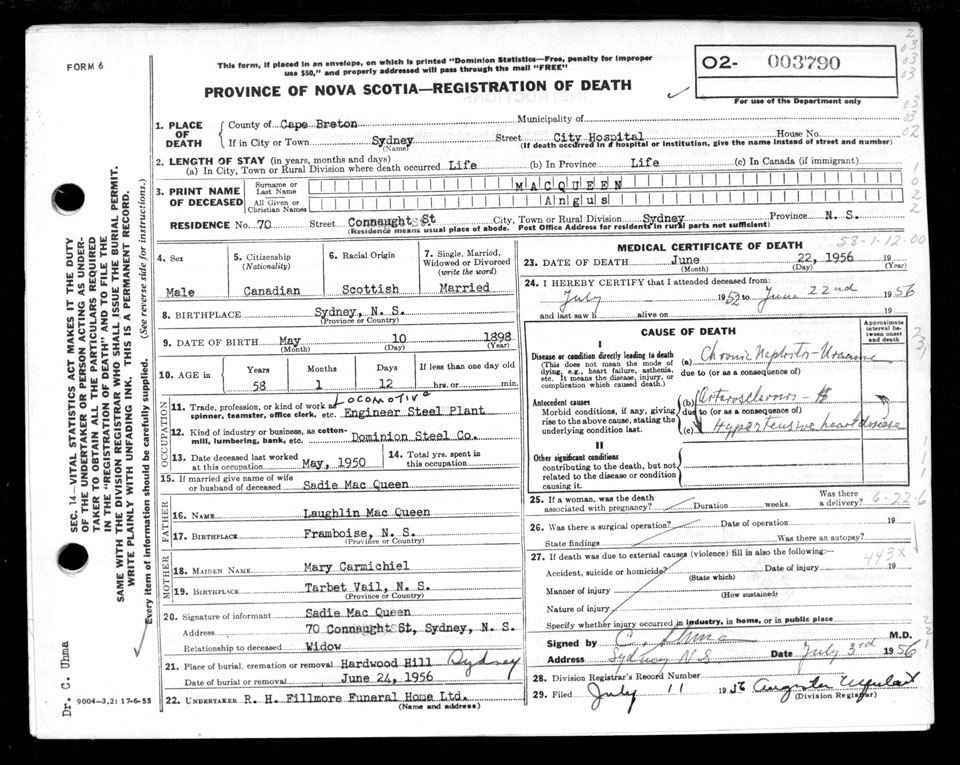 FORM 6
This form, if placed in an envelope, on which is printed "Dominion Statistics—Free, penalty for improper
use $50," and properly addressed will pass through the mail "FREE"
PROVINCE OF NOVA SCOTIA—REGISTRATION OF DEATH
O2- 003790
For use of the Department only
1. PLACE OF DEATH
County of Cape Breton Municipality of
If in City or Town Sydney Street City Hospital House No.
(Name) (If death occurred in a hospital or institution, give the name instead of street and number)
2. LENGTH OF STAY (in years, months and days)
(a) In City, Town or Rural Division where death occurred Life (b) In Province Life (c) In Canada (if immigrant)
3. PRINT NAME OF DECEASED
Surname or Last Name MACQUEEN
All Given or Christian Names Angus
RESIDENCE No. 70 Street Connaught St City, Town or Rural Division Sydney Province N. S.
(Residence means usual place of abode. Post Office Address for residents in rural parts not sufficient)
4. Sex Male
5. Citizenship (Nationality) Canadian
6. Racial Origin Scottish
7. Single, Married, Widowed or Divorced (write the word) Married
8. BIRTHPLACE Sydney, N. S.
(Province or Country)
9. DATE OF BIRTH May 10 1898
(Month) (Day) (Year)
10. AGE in Years Months Days If less than one day old
58 1 12 hrs. or min.
OCCUPATION
11. Trade, profession, or kind of work as spinner, teamster, office clerk, etc. LOCOMOTIVE Engineer Steel Plant
12. Kind of industry or business, as cotton-mill, lumbering, bank, etc. Dominion Steel Co.
13. Date deceased last worked at this occupation May, 1950
14. Total yrs. spent in this occupation
15. If married give name of wife or husband of deceased Sadie Mac Queen
FATHER
16. NAME Laughlin Mac Queen
17. BIRTHPLACE Framboise, N. S.
(Province or Country)
MOTHER
18. MAIDEN NAME Mary Carmichiel
19. BIRTHPLACE Tarbet Vail, N. S.
(Province or Country)
20. Signature of informant Sadie Mac Queen
Address 70 Connaught St, Sydney, N. S.
Relationship to deceased Widow
21. Place of burial, cremation or removal Hardwood Hill Sydney
Date of burial or removal June 24, 1956
22. UNDERTAKER R. H. Fillmore Funeral Home Ltd.
(Name and address)
MEDICAL CERTIFICATE OF DEATH
58-1-12-00
23. DATE OF DEATH June 22, 1956 19
(Month) (Day) (Year)
24. I HEREBY CERTIFY that I attended deceased from:
July 1952 to June 22nd 1956
and last saw h alive on 19
CAUSE OF DEATH
Approximate interval between onset and death
I
Disease or condition directly leading to death
(This does not mean the mode of dying, e.g., heart failure, asthenia, etc. It means the disease, injury, or complication which caused death.)
(a) Chronic Nephritis-Uraemia
due to (or as a consequence of)
Antecedent causes
Morbid conditions, if any, giving rise to the above cause, stating the underlying condition last.
(b) Arteriosclerosis
due to (or as a consequence of)
(c) Hypertensive heart disease
II
Other significant conditions
contributing to the death, but not related to the disease or condition causing it.
25. If a woman, was the death associated with pregnancy? Duration weeks. Was there a delivery?
6-22-6
26. Was there a surgical operation? Date of operation 19
State findings Was there an autopsy?
27. If death was due to external causes (violence) fill in also the following:
443X
Accident, suicide or homicide? Date of injury 19
(State which)
Manner of injury
(How sustained)
Nature of injury
Specify whether injury occurred in industry, in home, or in public place
Signed by C. Uhma M.D.
Address Sydney N.S. Date July 3rd 1956
28. Division Registrar's Record Number
29. Filed July 11 1956
(Division Registrar)
SEC. 14—VITAL STATISTICS ACT MAKES IT THE DUTY
OF THE UNDERTAKER OR PERSON ACTING AS UNDER-
TAKER TO OBTAIN ALL THE PARTICULARS REQUIRED
IN THE "REGISTRATION OF DEATH" AND TO FILE THE
SAME WITH THE DIVISION REGISTRAR WHO SHALL ISSUE THE BURIAL PERMIT.
WRITE PLAINLY WITH UNFADING INK. THIS IS A PERMANENT RECORD.
Every item of information should be carefully supplied. (See reverse side for instructions.)
Dr. C. Uhma
9004—3,2: 17-6-55